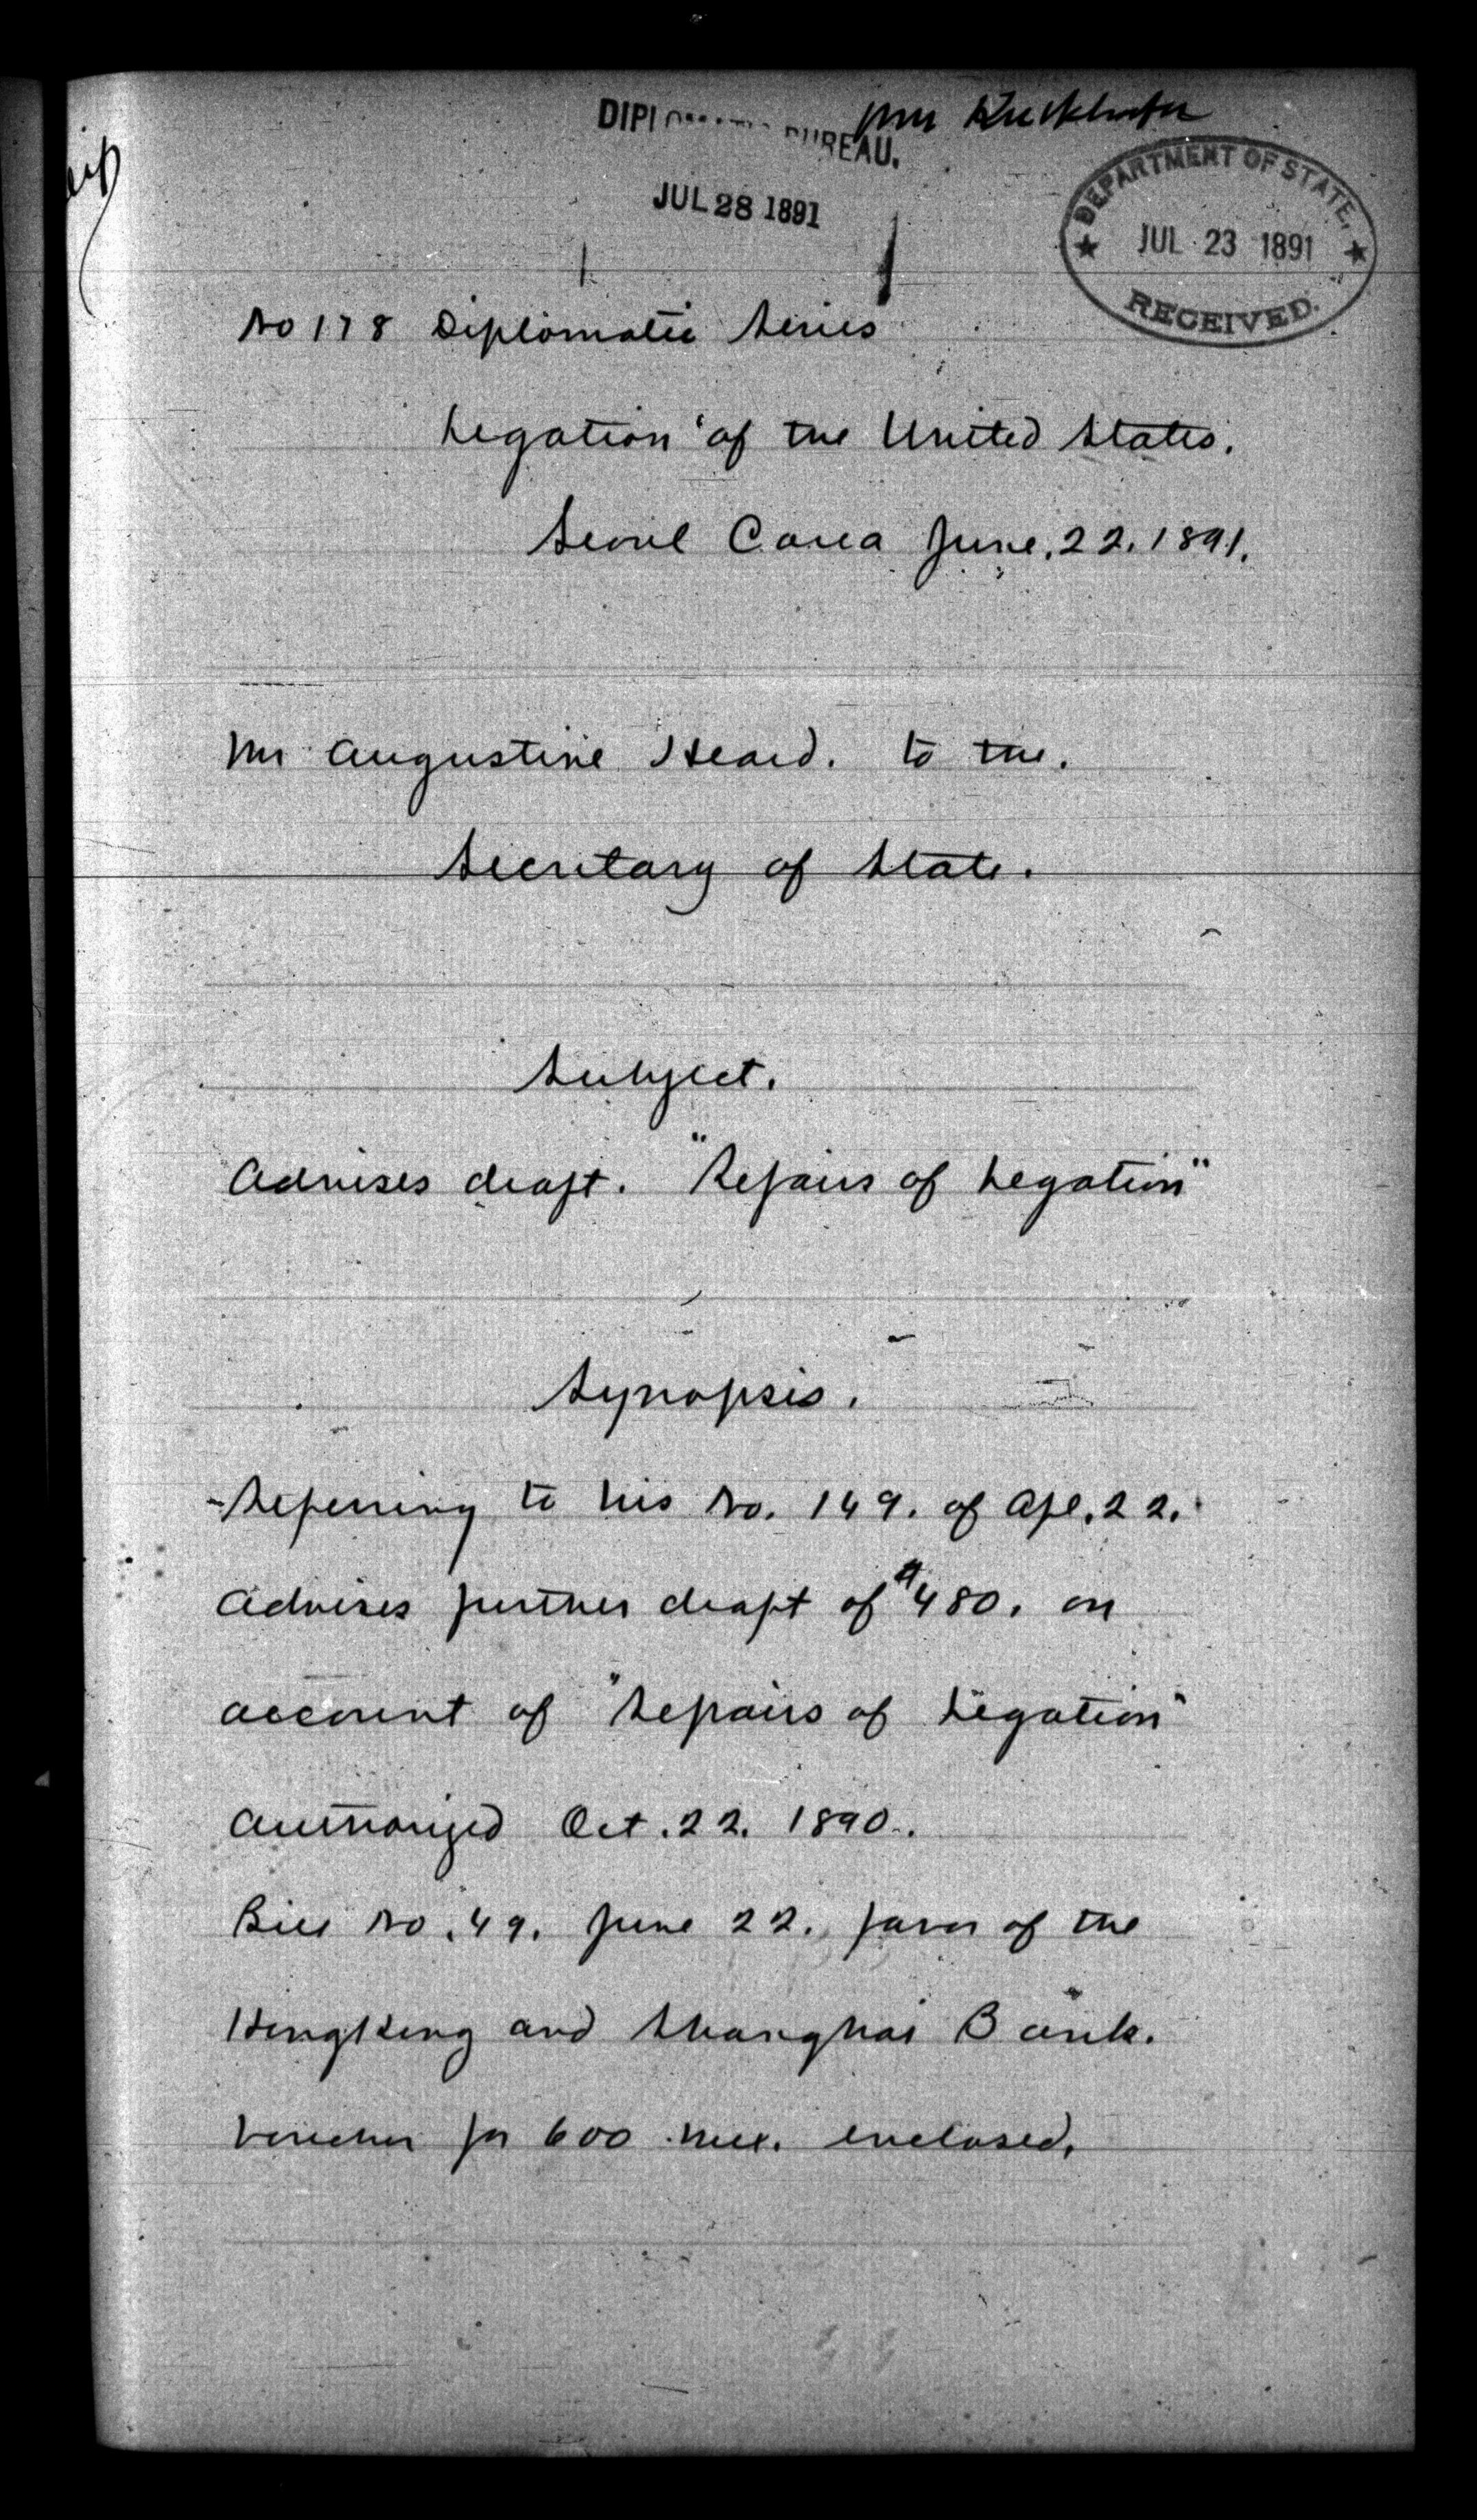 DIPLOMATIC BUREAU.
JUL 28 1891
DEPARTMENT OF STATE,
JUL 23 1891
RECEIVED.
No 178 Diplomatic Series
Legation of the United States.
Seoul Corea June. 22. 1891.
Mr Augustine Heard. to the.
Secretary of State.
Subject.
Advises draft. "Repairs of Legation"
Synopsis.
Referring to his No. 149. of Apl. 22.
Advises further draft of $480. on
account of "Repairs of Legation"
Authorized Oct. 22. 1890.
Bill No. 49. June 22. favor of the
HongKong and Shanghai Bank.
Voucher for 600 Mex. enclosed.